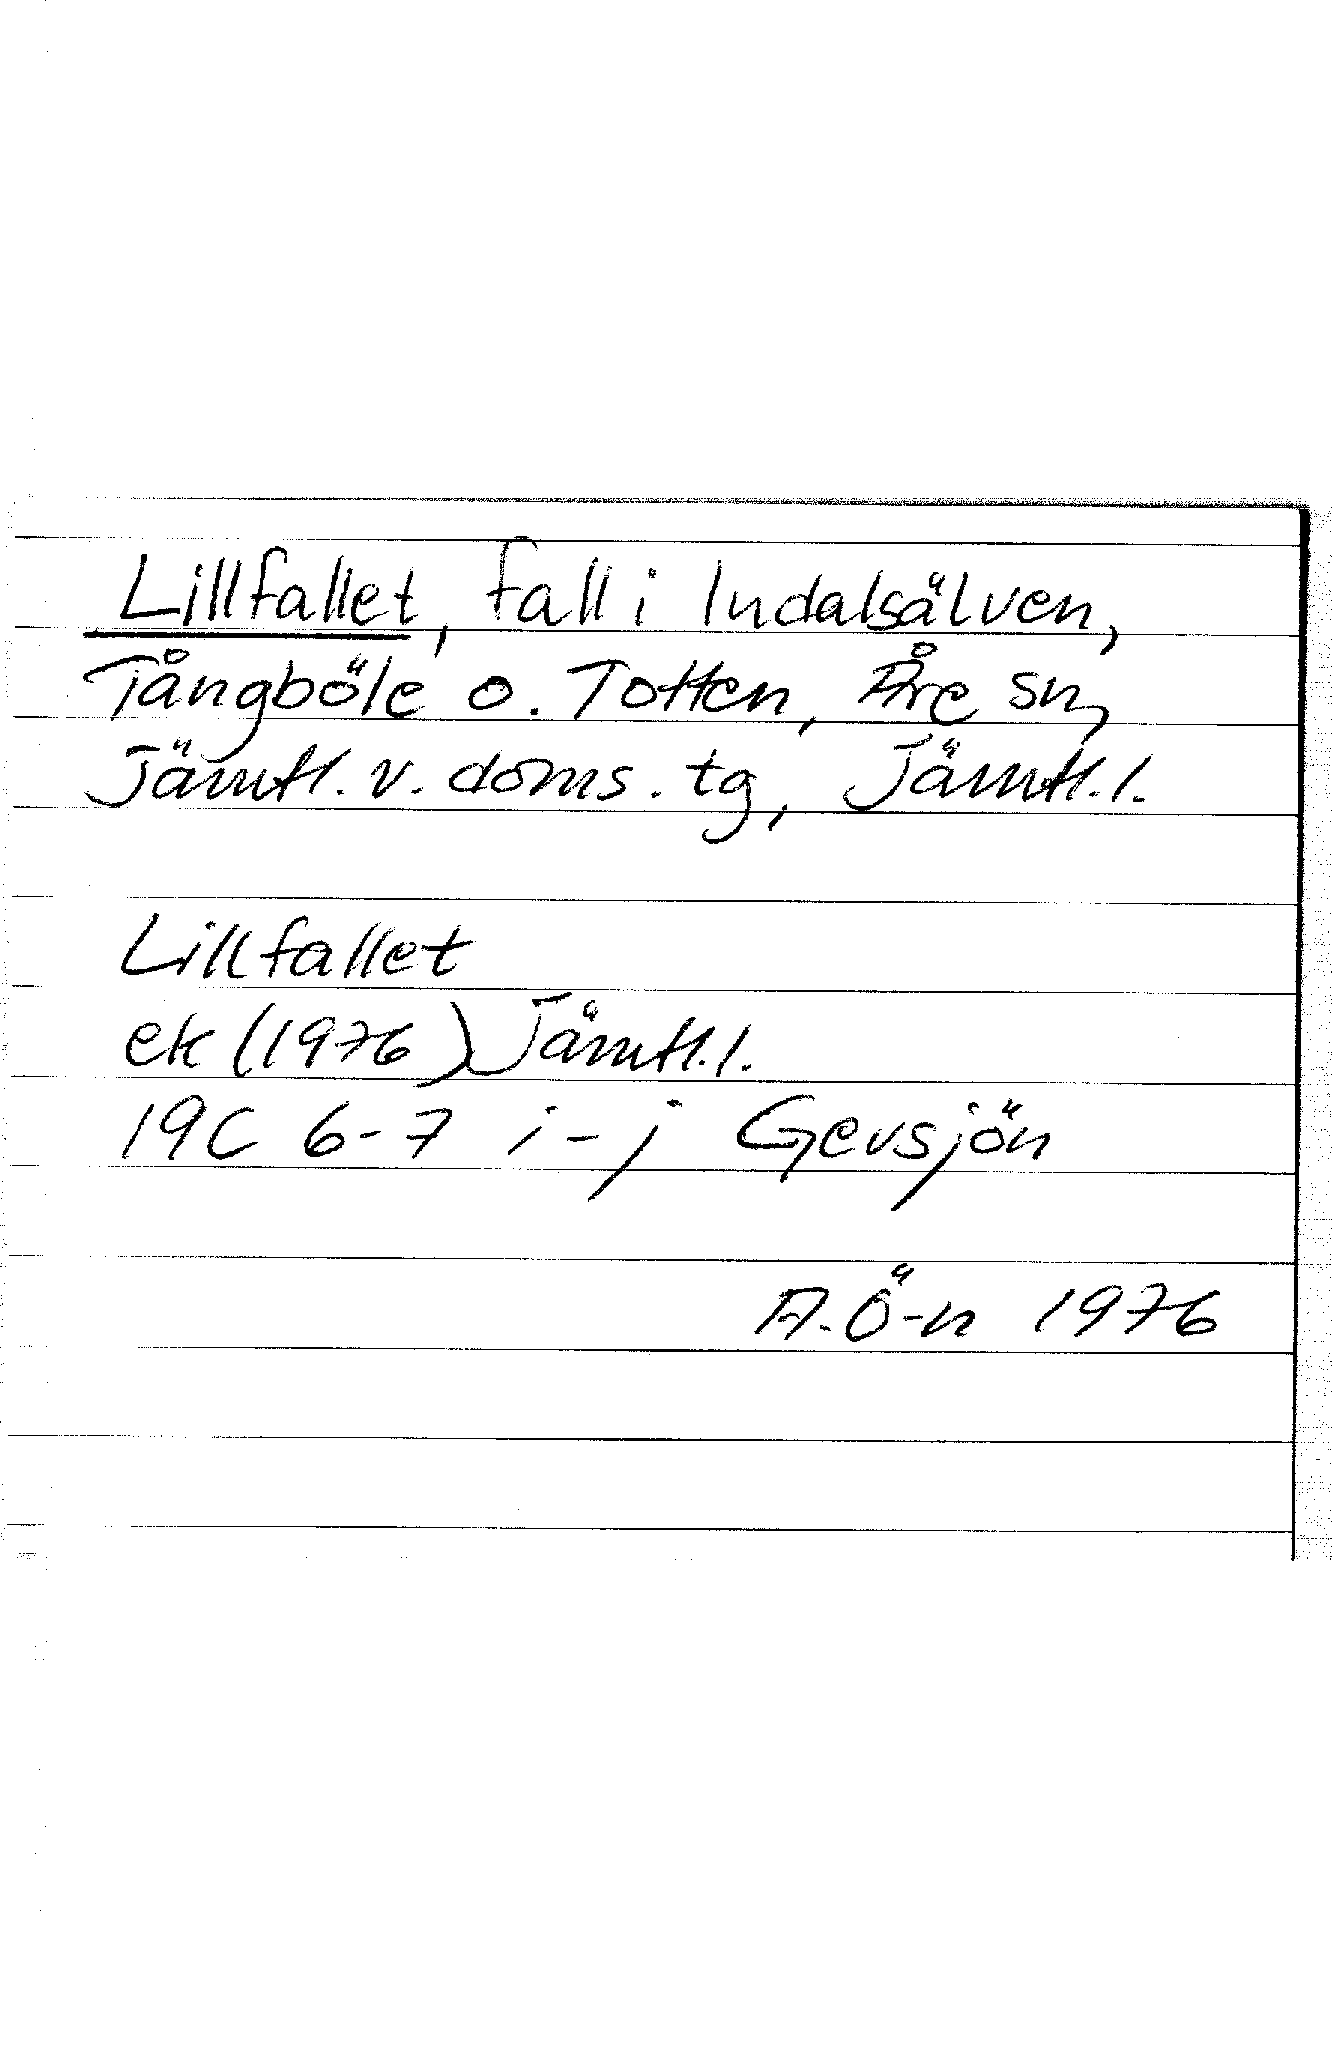 Lillfallet, fall i Indalsälven,
Tångböle o. Totten, Åre sn,
Jämtl. v. doms. tg, Jämtl. l.
Lillfallet
ek (1976) Jämtl. l.
19C 6-7 i-j Gevsjön
A. Ö-n 1976